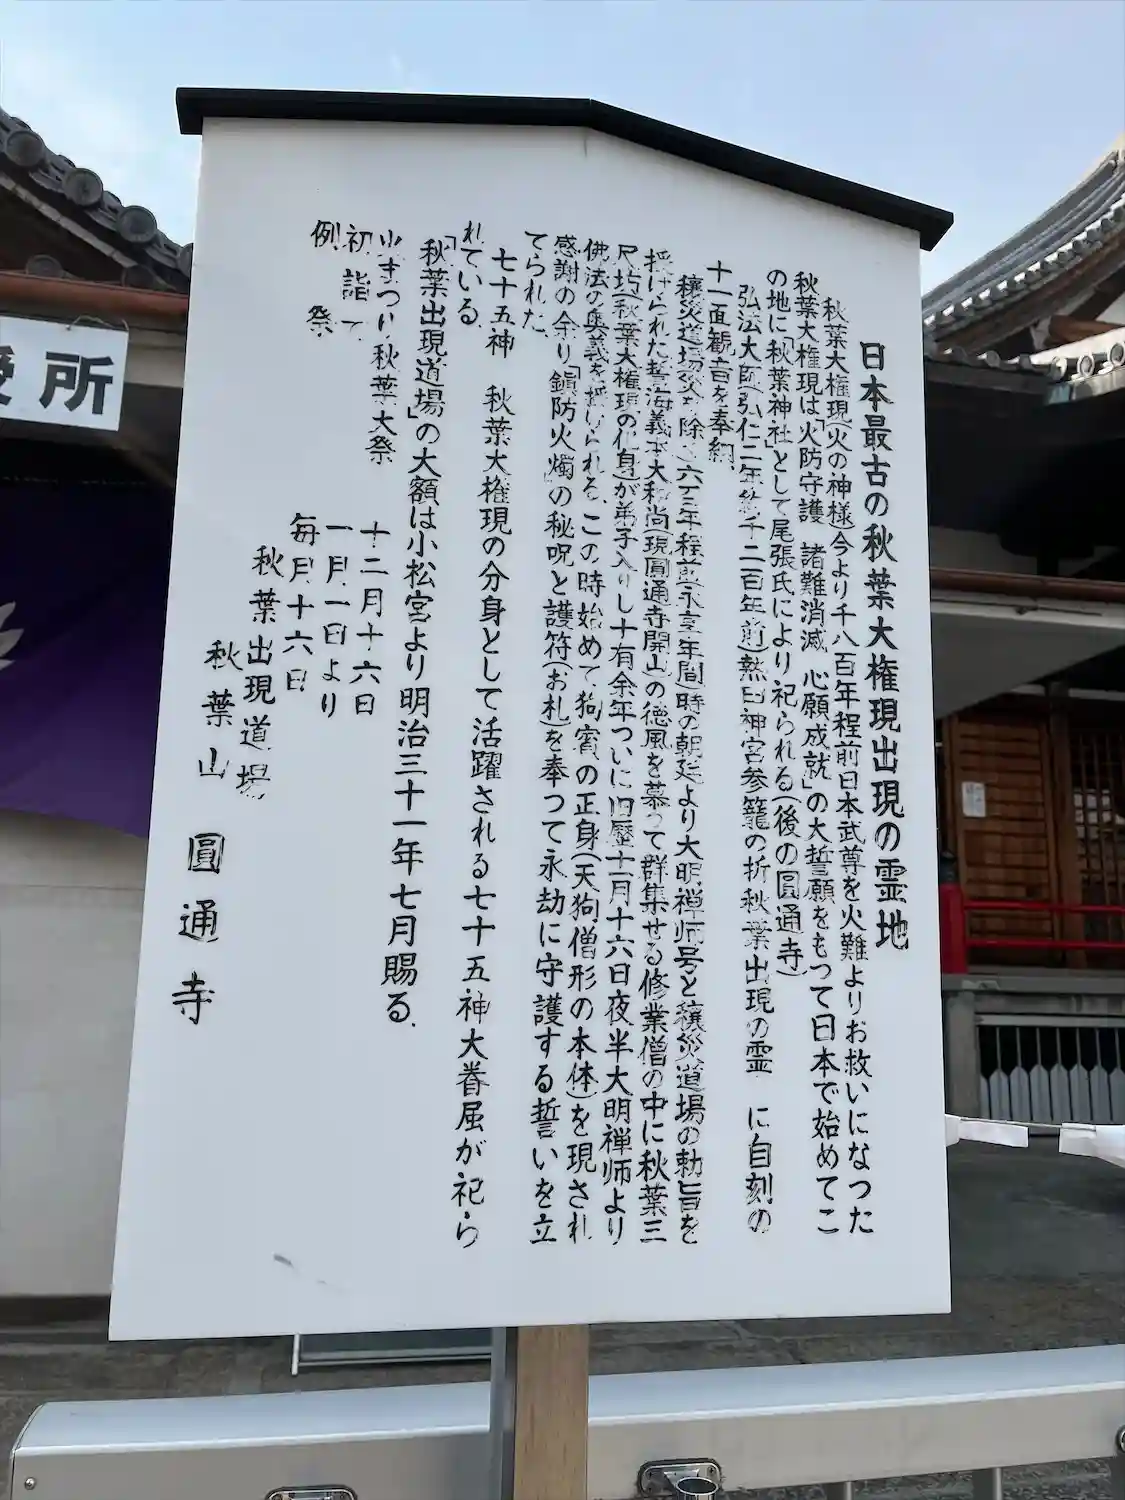 日本最古の秋葉大権現出現の霊地
秋葉大権現(火の神様)今より千八百年程前日本武尊を火難よりお救いになつた
秋葉大権現は「火防守護 諸難消滅 心願成就」の大誓願をもつて日本で始めてこ
の地に「秋葉神社」として尾張氏により祀られる(後の圓通寺)
弘法大師(弘仁二年約千二百年前)熱田神宮参籠の折秋葉出現の霊 に自刻の
十一面観音を奉納
穰災道場 除 六 三年程前(永享年間)時の朝廷より大明禅師号と穰災道場の勅旨を
授けられた誓海義本大和尚(現圓通寺開山)の徳風を慕つて群集せる修業僧の中に秋葉三
尺坊(秋葉大権現の化身)が弟子入りし十有余年ついに旧歴十一月十六日夜半大明禅師より
佛法の奥義を授けられる、この時始めて狗賓の正身(天狗僧形の本体)を現され
感謝の余り「鎭防火燭」の秘呪と護符(お札)を奉つて永劫に守護する誓いを立
てられた
七十五神 秋葉大権現の分身として活躍される七十五神大眷屈が祀ら
れている
「秋葉出現道場」の大額は小松宮より明治三十一年七月賜る.
火まつり秋葉大祭 十二月十六日
初詣 一月一日より
例 祭 毎月十六日
秋葉出現道場
秋葉山 圓通寺
所